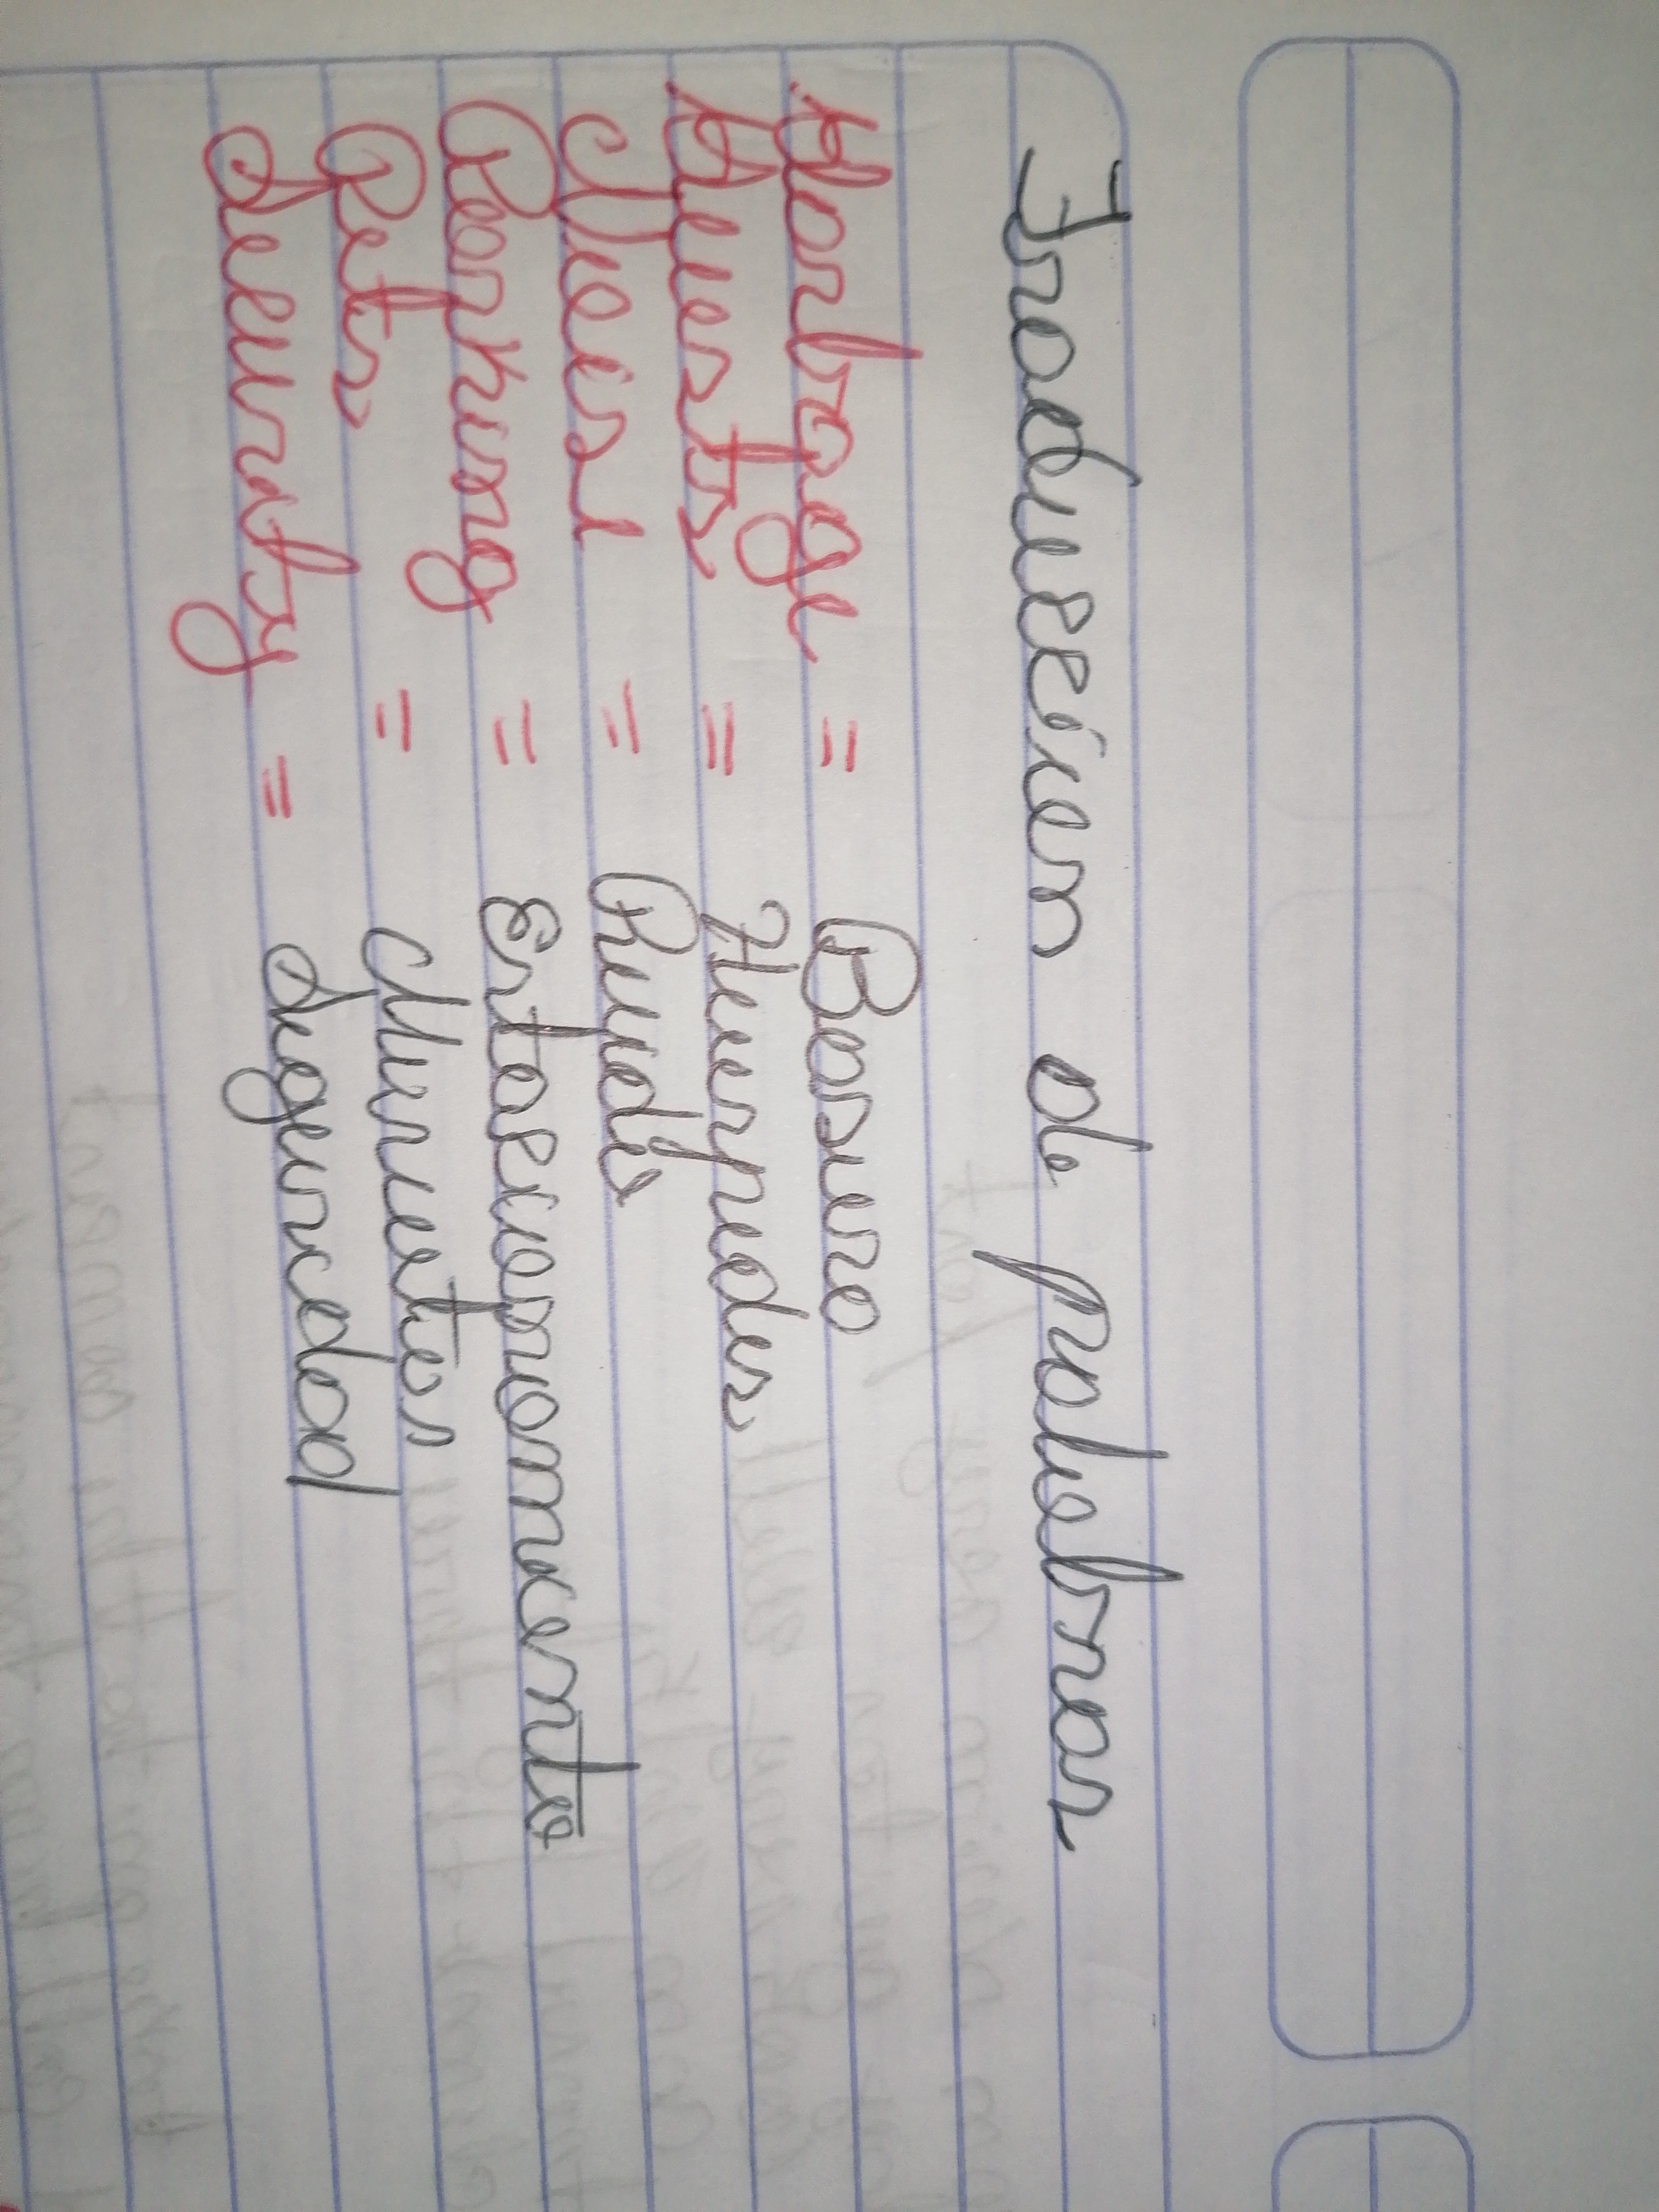 Traduccion de palabras
Garbage = Basura
Guests = Huespedes
Noise = Ruido
Parking = Estacionamiento
Pets = Mascotas
Security = Seguridad